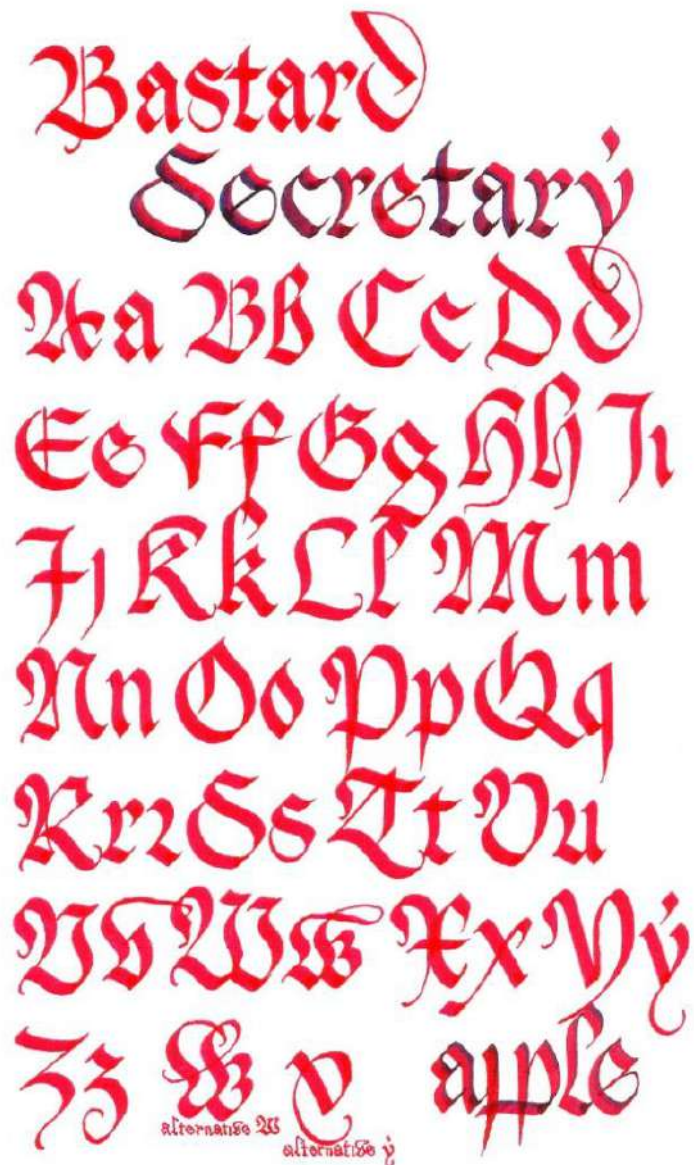 Bastard
Secretarẏ
Aa Bb Cc Dd
Ee Ff Gg Hh Iı
Jȷ Kk Ll Mm
Nn Oo Pp Qq
Rrꝛ Ss Tt Uu
Vv Ww Xx Yẏ
Zz W y apple
alternative W
alternative ẏ